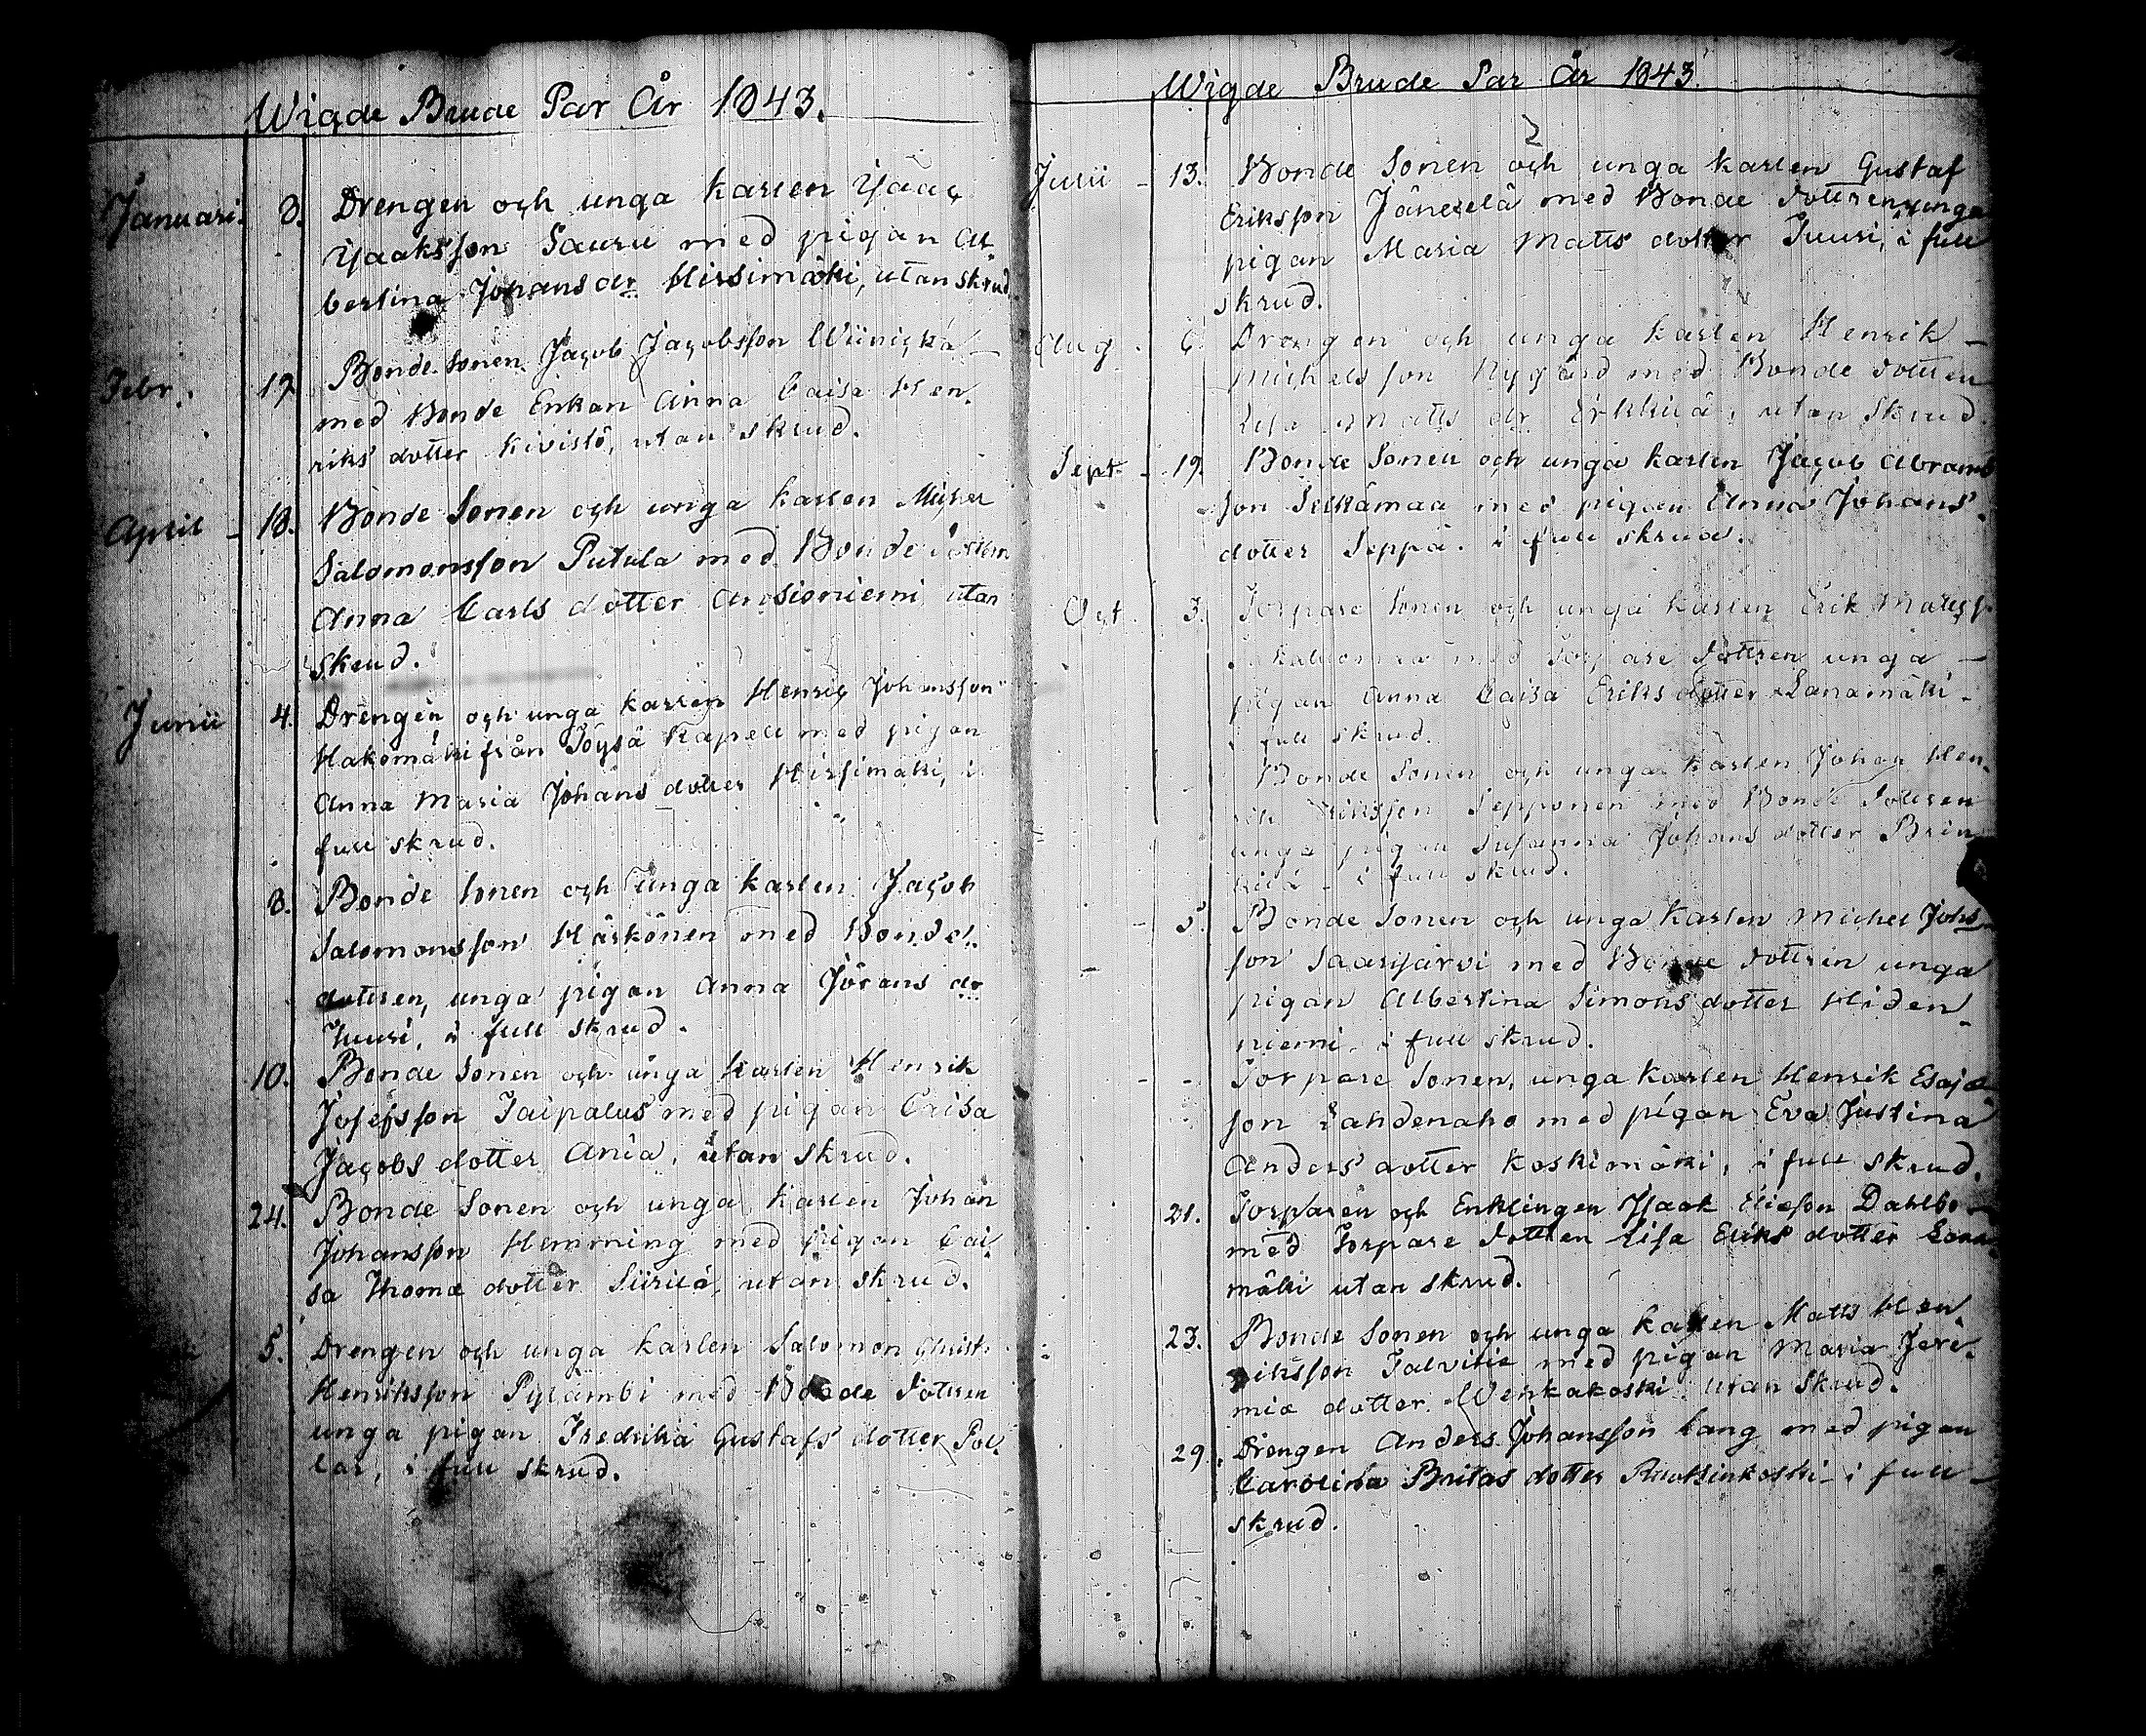 Wigde Brude Par År 1843.
Januari. 3. Drengen och unga karlen Isaac
Isaaksson Sauru med pigan Al
bertina Johans dr Hirsimäki, utan skrud.
Febr. 17 Bonde Sonen Jacob Jacobsson Wiinicka
med Bonde Enkan Anna Caisa Hen
riks dotter Kivistö, utan skrud.
April - 18. Bonde Sonen och unga karlen Michel
Salomonsson Putula med Bonde dottren
Anna Carls dotter utan
skrud.
Junii 4. Drengen och unga karlen Henric Johansson
Hakomäki från Töysä Kapell med pigan
Anna Maria Johans dotter Hirsimäki, i
full skrud.
8. Bonde Sonen och unga karlen Jacob
Salomonsson Härkönen med Bonde
dottren, unga pigan Anna Görans dr
Juusi, i full skrud.
10. Bonde Sonen och unga karlen Henrik
Josefsson Taipalus med pigan Caisa
Jacobs dotter Ania, utan skrud.
24. Bonde Sonen och unga karlen Johan
Johansson Hemming med pigan Cai
sa Thomæ dotter Siirilä, utan skrud.
5. Drengen och unga karlen Salomon Christ.
Henriksson Pylsämbi med Bonde dottren
unga pigan Fredrika Gustafs dotter Pol
lar, i full skrud.
Wigde Brude Par År 1843.
2
Julii - 13. Bonde Sonen och unga karlen Gustaf
Eriksson Jäneselä med Bonde dottren unga
pigan Maria Matts dotter Juusi, i full
skrud.
Aug. 6. Drengen och unga karlen Henrik
Michelsson Nygård med Bonde dottren
Lisa Matts dr Erkkilä, utan skrud.
Sept. - 19. Bonde Sonen och unga karlen Jacob Abrams
son Selkämaa med pigan Anna Johans
dotter Seppä. i full skrud.
Oct. 3. Torpare Sonen och unga karlen Erik Matts
med Torpare dottren unga
pigan Anna Caisa Eriks dotter Lanamäki
i full skrud.
Bonde Sonen och unga karlen Johan Hen
rik Eriksson Sepponen med Bonde dottren
unga pigan Susanna Johans dotter Brin
kilä - i full skrud.
- 5. Bonde Sonen och unga karlen Michel Johs
son Saarijärvi med Bonde dottren unga
pigan Albertina Simons dotter Hiden
niemi, i full skrud.
- - Torpare Sonen, unga karlen Henrik Esaiæ
son Lahdenaho med pigan Eva Justina
Anders dotter Koskimäki, i full skrud.
21. Torparen och Enklingen Isaak Eliæson Dahlbo
med Torpare dottren Lisa Eriks dotter Lana
mäki utan skrud.
23. Bonde Sonen och unga karlen Matts Hen
riksson Talvitie med pigan Maria Jere
miæ dotter Wenkakoski utan skrud.
29. Drengen Anders Johansson Lang med pigan
Carolina Britas dotter Ruotsinkoski - i full
skrud.